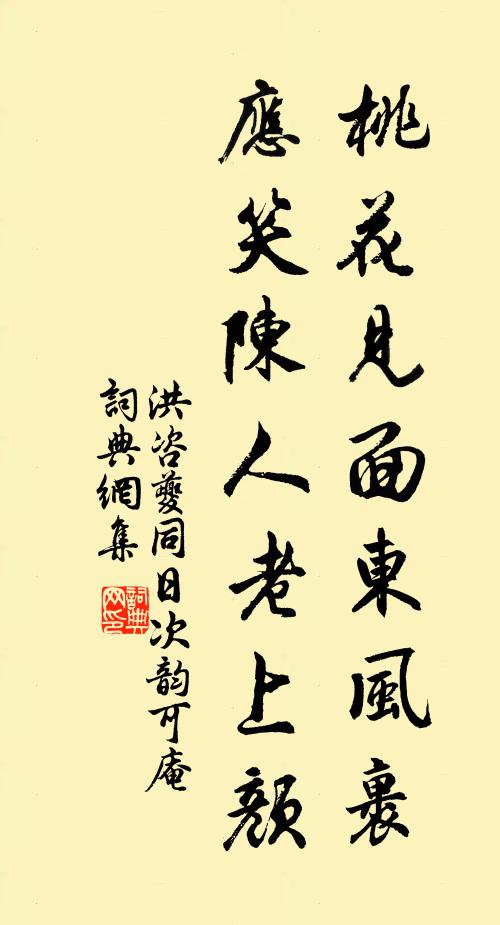 桃花見面東風裹
應笑陳人老上顏
洪咨夔同日次韵可庵
詞典網集
詞典
网印